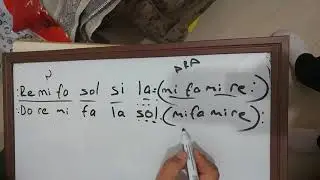 :Re mi fa sol si la=(mi fa mi re:)
:Do re mi fa la sol:(mi fa mi re):